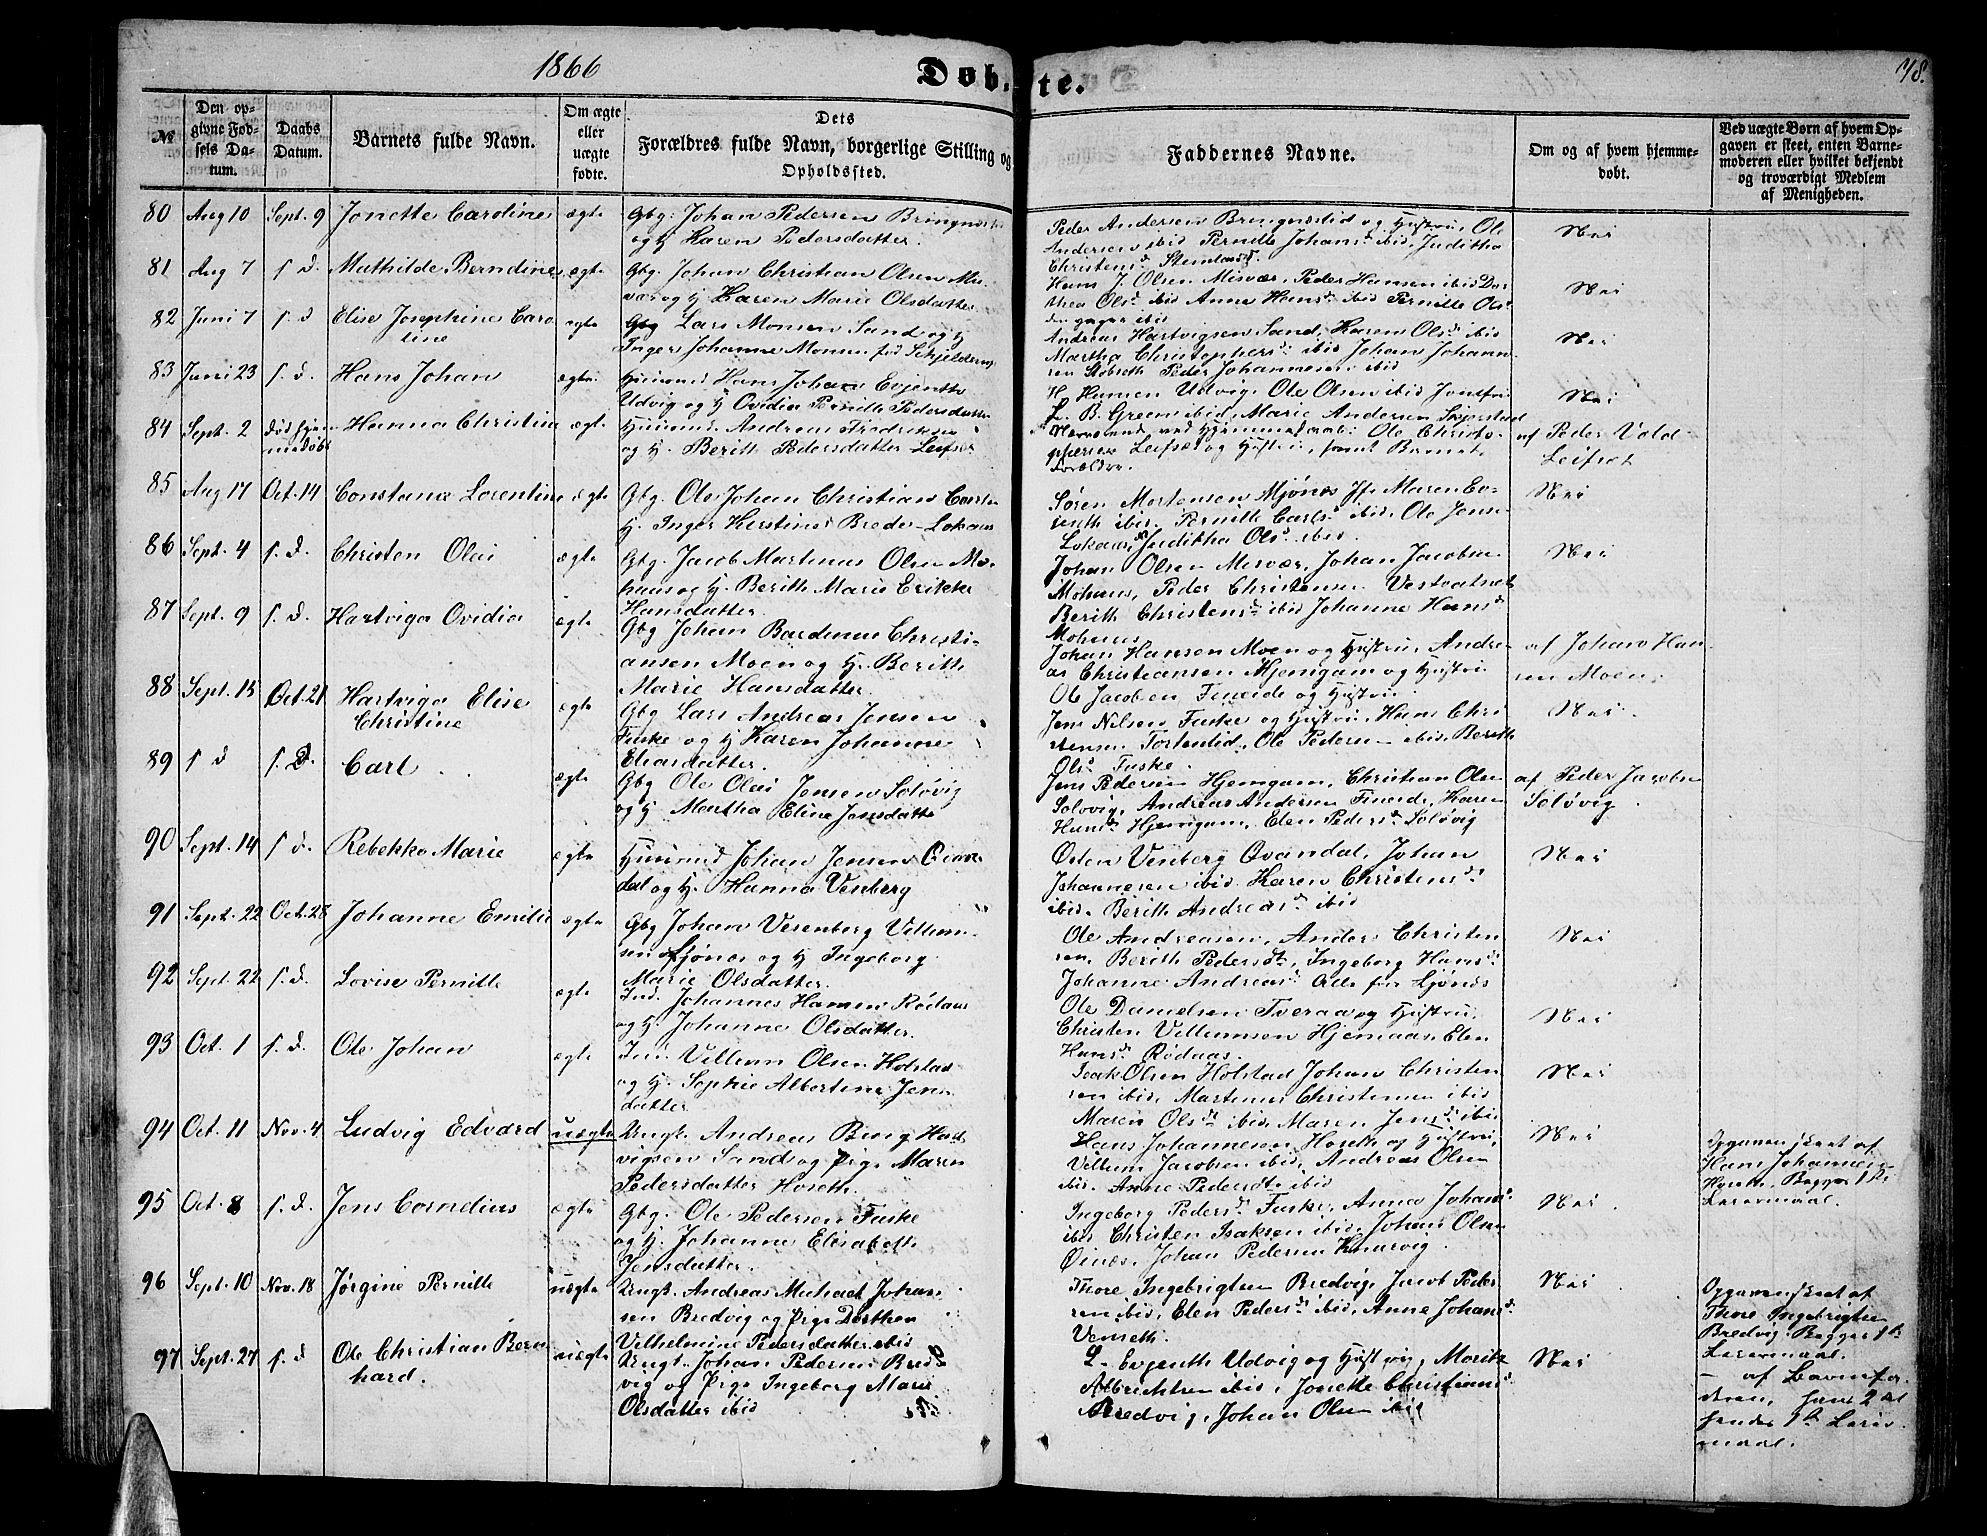 1866
Døbte.
78.
№
Den opgivne Fødsels Datum.
Daabs Datum.
Barnets fulde Navn.
Om ægte eller uægte fødte.
Dets Forældres fulde Navn, borgerlige Stilling og Opholdssted.
Faddernes Navne.
Om og af hvem hjemmedøbt.
Ved uægte Børn af hvem Opgaven er skeet, enten Barnemoderen eller hvilket bekjendt og troværdigt Medlem af Menigheden.
80 Aug 10 Sept. 9 Jonette Caroline ægte
Gbg. Johan Pedersen
og H Karen Pedersdatter.
Peder Andersen Bringnestid og Hustru, Ole
Andersen ibid Pernille Johansd. ibid, Juditha
Christensd.
Nei
81 Aug 7 s. d. Mathilde Berndine ægte
Gbg. Johan Christian Olsen Mis-
vær og H Karen Marie Olsdatter
Hans J. Olsen Misvær, Peder Hansen ibid Dor-
thea Olsd. ibid Anne Hansd. ibid Pernille Olsd.
ibid
Nei
82 Juni 7 s. d Elise Josephine Caro
line ægte
Gbg Lars Monsen Sand og H
Inger Johanne Monsen
Andreas Hartvigsen Sand, Karen Olsd. ibid
Martha Christophersd. ibid Johan Johann-
sen Peder Johannesen ibid
Nei
83 Juni 23 s. d. Hans Johan ægte
Huusmd Hans Johan Evjenth
Udvig og H Ovidia Pernille Pedersdatter
H. Hansen Udvig, Ole Olsen ibid
L. B. Green ibid, Marie Andersen
Nei
84 Sept. 2 Hanna Christina ægte
Huusmd. Andreas Fredriksen
og H. Berith Pedersdatter Leifset
ved Hjemmedaab: Ole Christo-
phersen Leifset og Hustru, samt Barnets
Forældre.
af Peder Vold-
Leifset
85 Aug 17 Oct. 14 Constance Lorentine ægte
Gbg. Ole Johan Christian
H. Inger Kerstine Breder Lokaas
Søren Mortensen Mjønes Jf. Maren Ev-
jenth ibid. Pernille Carlsd. ibid, Ole Jensen
Lokaas, Juditha Olsd. ibid
Nei
86 Sept. 4 s. D. Christen Olai ægte
Gbg. Jacob Martinus Olsen Mo-
haus og H. Berith Marie Erikke
Hansdatter.
Johan Olsen Misvær, Johan Jacobsen
Mohus, Peder Christensen Vestvatnet
Berith Christensd. ibid Johanne Hansd.
Mohus
Nei
87 Sept. 9 s. d. Hartviga Ovidia ægte
Gbg Johan Bardinus Christi-
ansen Moen og H. Berith
Marie Hansdatter.
Johan Hansen Moen og Hustru, Andre-
as Christiansen Hjemgam og Hustru
Ole Jacobsen Fineide og Hustru
af Johan Han
sen Moen.
88 Sept. 15 Oct. 21 Hartviga Elise
Christine ægte
Gbg Lars Andreas Jensen
Fuske og H Karen Johanne
Eliasdatter.
Jens Nilsen Fuske og Hustru, Hans Chri
stensen Tortenlid, Ole Pedersen ibid. Berith
Olsd. Fuske.
Nei.
89 s d s. D. Carl ægte
Gbg Ole Olai Jensen Soløvig
og H Martha Eline Jensdatter
Jens Pedersen Hjemgam, Christian Olsen
Soløvig, Andreas Andersen Fineide, Karen
Hansd. Hjemgam, Elen Pedersd. Soløvig
af Peder Jacobsen
Soløvig.
90 Sept. 14 s. d. Rebekka Marie ægte
Huusmd Johan Jensen Qvan-
dal og H. Hanna Venberg
Osten Venberg Qvandal, Johan
Johannesen ibid. Karen Christensd.
ibid. Berith Andreasd. ibid
Nei
91 Sept. 22 Oct. 28 Johanne Emilie ægte
Gbg Johan Vesenberg Villum-
sen Ljønes og H Ingeborg
Marie Olsdatter.
Ole Andreasen, Anders Christen
sen, Berith Pedersdt., Ingeborg Hansd.
Johanne Andreasd. Alle fra Ljønes
Nei
92 Sept. 22 s. d. Lovise Pernille ægte
Ind. Johannes Hansen Rødaas
og H. Johanne Olsdatter.
Ole Danielsen Tveraa og Hustru,
Christen Villumsen Hjemaas, Elen
Hansd. Rødaas.
Nei
93 Oct. 1 s. d. Ole Johan ægte
Ind. Villum Olsen Holstad
og H. Sophie Albertine Jens
datter
Isak Olsen Holstad Johan Christen
sen ibid, Martinus Christensen ibid
Maren Olsd. ibid, Maren Jensd. ibid
Nei
94 Oct. 11 Nov. 4 Ludvig Edvard uægte
Ungk. Andreas Berg Hart
vigsen Sand og Pige Maren
Pedersdatter Hoseth.
Hans Johannesen Hoseth og Hustru,
Villum Jacobsen ibid, Andreas Olsen
ibid. Anne Pedersdt. ibid
Nei
Opgaven skeet af
Hans Johannesen
Hoseth. Begges 1ste
Leiermaal.
95 Oct. 8 s. d. Jens Cornelius ægte
Gbg. Ole Pedersen Fuske
og H. Johanne Elisabeth
Jensdatter.
Ingeborg Pedersd. Fuske, Anna Johansd.
ibid Christen Isaksen ibid, Johan Olsen
Øines, Johan Pedersen Knarvig.
Nei
96 Sept. 10 Nov. 18 Jørgine Pernille uægte
Ungk. Andreas Michael Johan
sen Bredvig og Pige Dorthea
Vilhelmine Pedersdatter ibid
Thore Ingebrigtsen Bredvig, Jacob Peder
sen ibid, Elen Pedersd. ibid, Anne Johansd.
Venseth.
Nei
Opgaven skeet af
Thore Ingebrigtsen
Bredvig. Begges 1ste
Leiermaal.
97 Sept. 27 s. d Ole Christian Bern
hard. uægte
Ungk. Johan Pedersen Bred
vig og Pige Ingeborg Marie
Olsdatter ibid
L. Evjenth Udvig og Hustru, Moritz
Albrichtsen ibid, Jonette Christiansd.
Bredvig, Johan Olsen ibid
Nei
– af Barnefa-
deren, hans 2det
hendes 1ste Leier
maal.